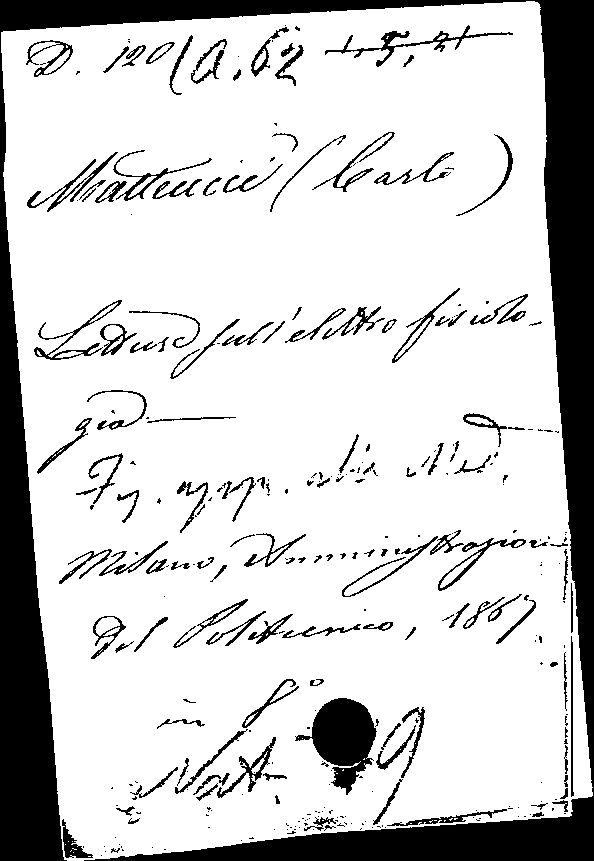 D. 120 (a. 62 1, 5, 21
Matteucci (Carlo)
Letture sull'elettro fisiolo-
gia
Fis. app. alla Med.
Milano, Amministrazione
del Politecnico, 1867.
in 8°
Nat. 9